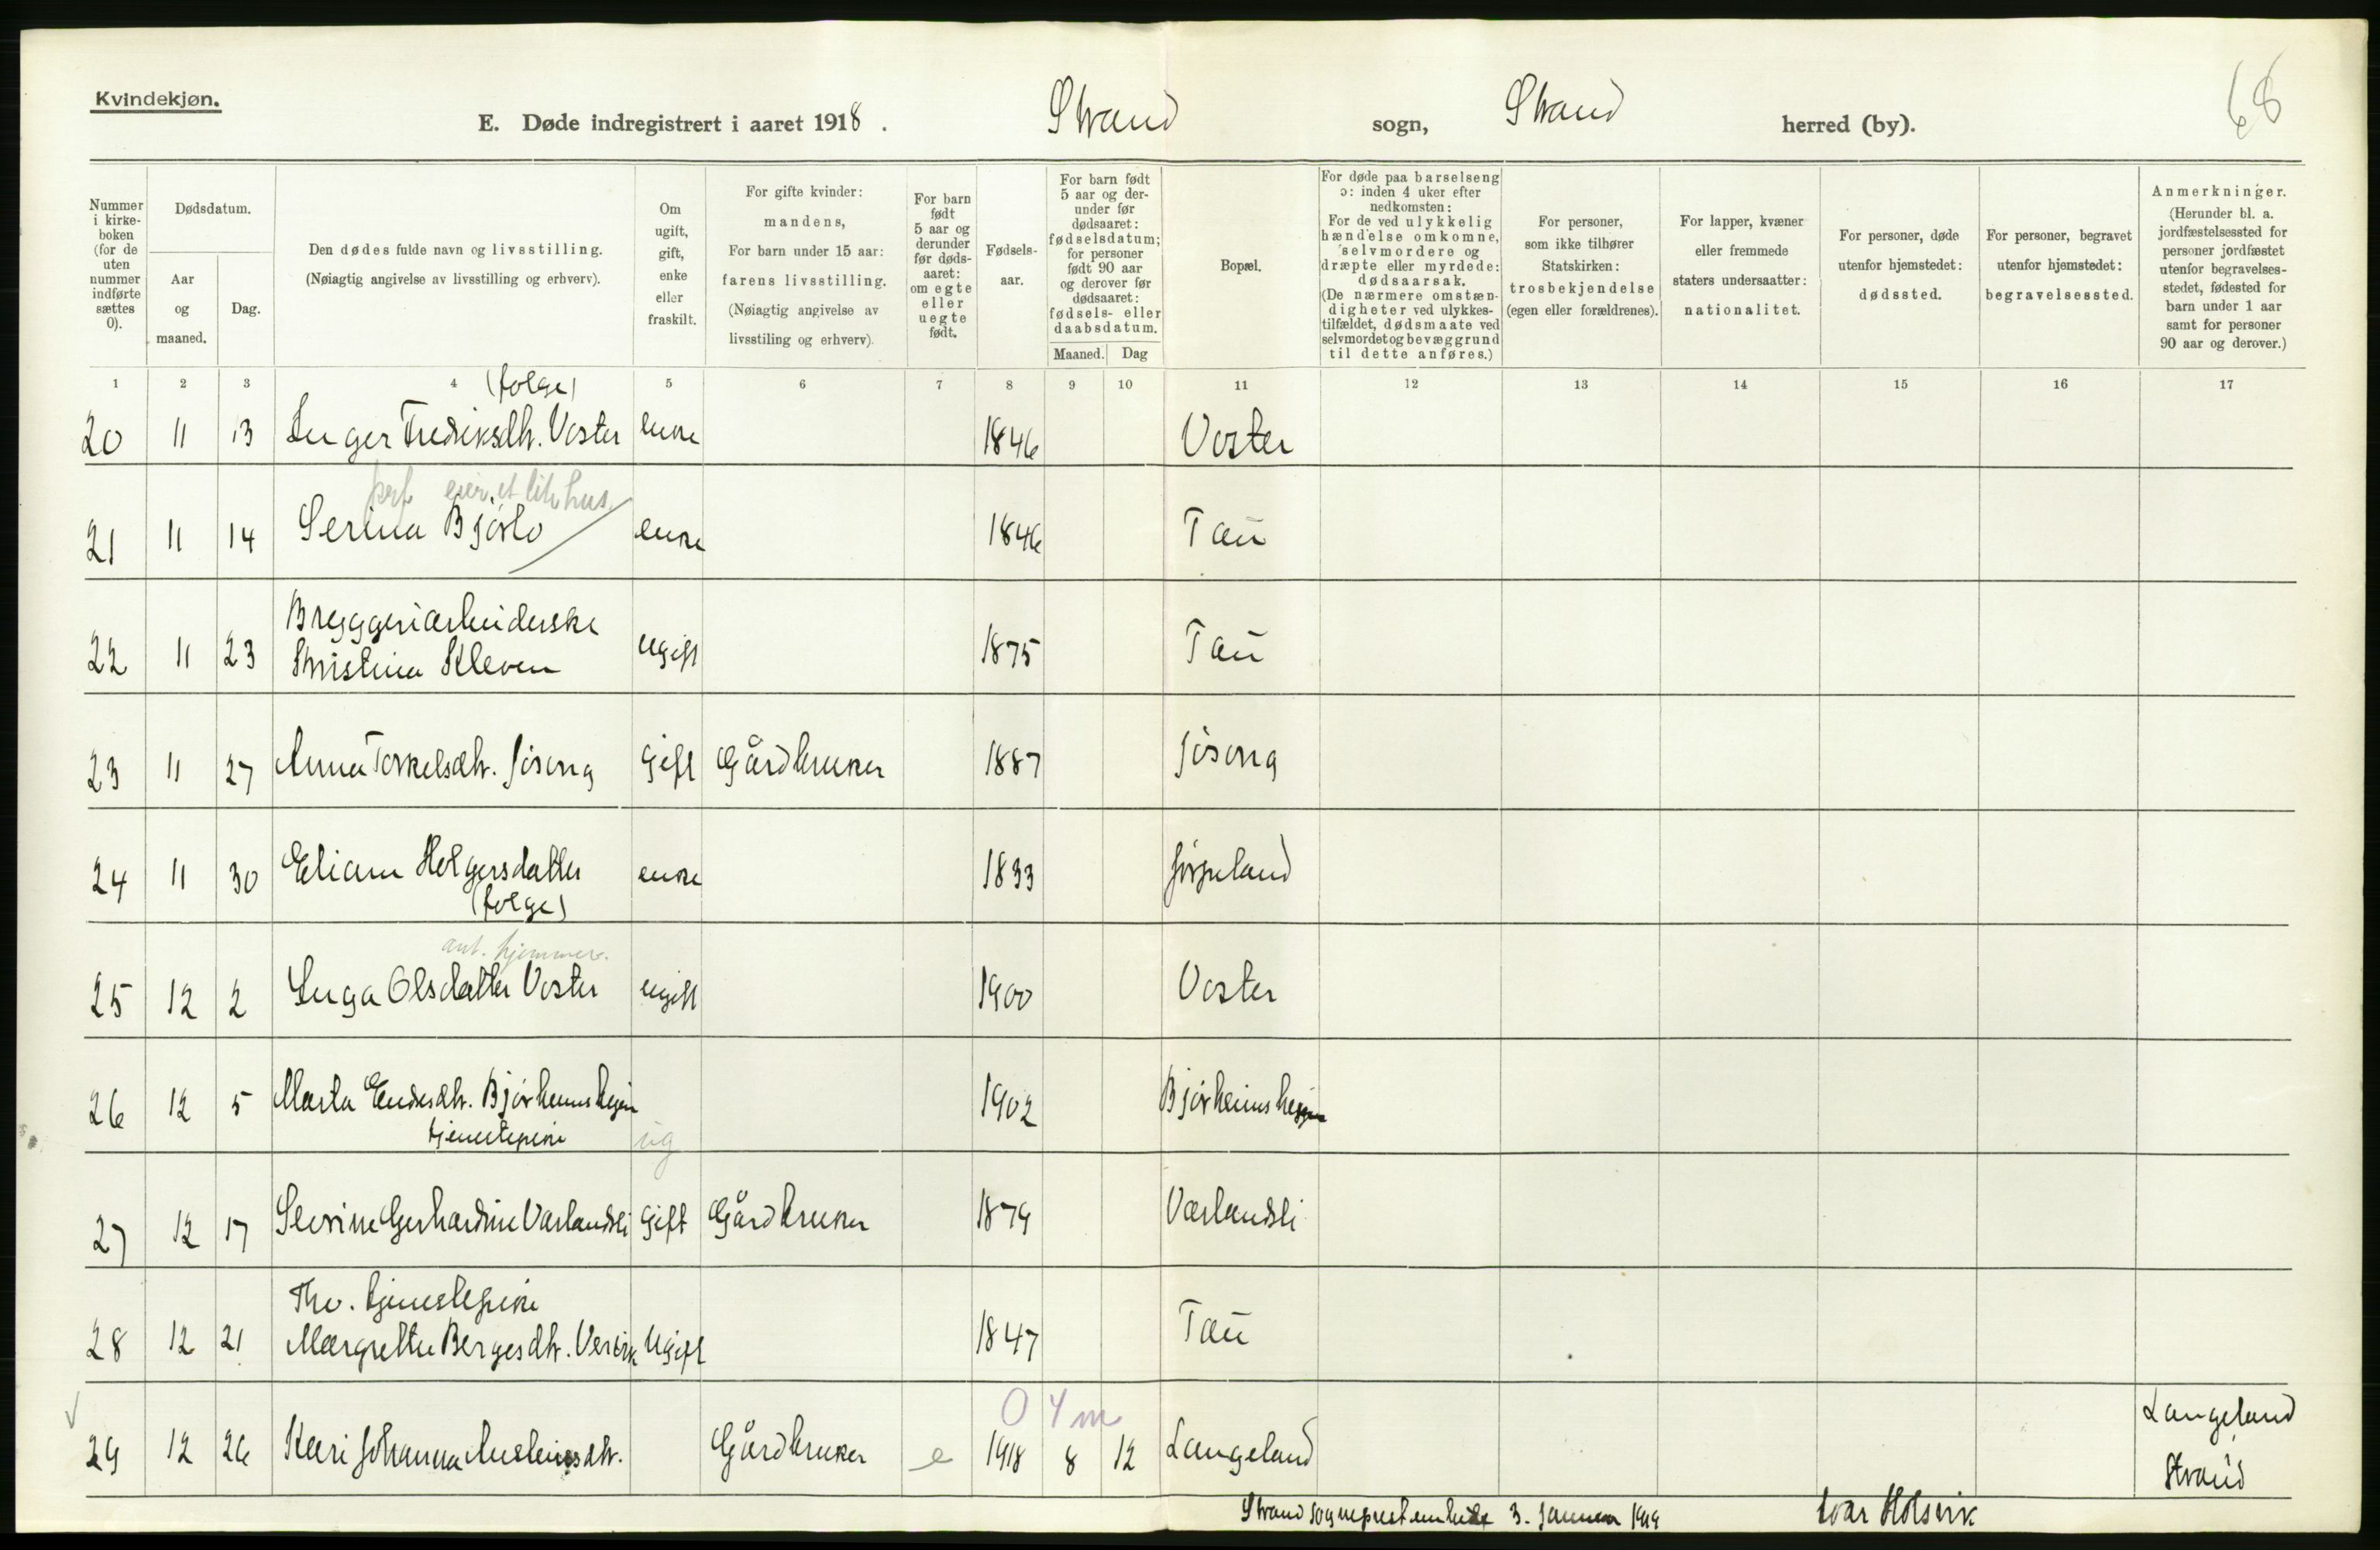 Kvindekjøn.
E. Døde indregistrert i aaret 1918. Strand sogn, Strand herred (by).
68
Nummer i kirke-boken (for de uten nummer indførte sættes 0).
Dødsdatum.
Aar og maaned.
Dag.
Den dødes fulde navn og livsstilling.
(Nøiagtig angivelse av livsstilling og erhverv).
Om ugift, gift, enke eller fraskilt.
For gifte kvinder: mandens,
For barn under 15 aar: farens livsstilling.
(Nøiagtig angivelse av livsstiling og erhverv).
For barn født 5 aar og derunder før døds-aaret: om egte eller uegte født.
Fødsels-aar.
For barn født 5 aar og der-under før dødsaaret: fødselsdatum; for personer født 90 aar og derover før dødsaaret: fødsels- eller daabsdatum.
Maaned. Dag
Bopæl.
For døde paa barselseng ɔ: inden 4 uker efter nedkomsten: For de ved ulykkelig hændelse omkomne, selvmordere og dræpte eller myrdede: dødsaarsak. (De nærmere omstæn-digheter ved ulykkes-tilfældet, dødsmaate ved selvmordet og bevæggrund til dette anføres.)
For personer, som ikke tilhører Statskirken: trosbekjendelse (egen eller forældrenes).
For lapper, kvæner eller fremmede staters undersaatter: nationalitet.
For personer, døde utenfor hjemstedet: dødssted.
For personer, begravet utenfor hjemstedet: begravelsessted.
Anmerkninger.
(Herunder bl. a. jordfæstelsessted for personer jordfæstet utenfor begravelses-stedet, fødested for barn under 1 aar samt for personer 90 aar og derover.)
1 2 3 4 5 6 7 8 9 10 11 12 13 14 15 16 17
(folge)
20 11 13 Inger Frediksdtr. Voster enke 1846 Voster
eier et lite hus
21 11 14 Serina Bjørlo enke 1846 Tau
Bryggeriarbeiderske
22 11 23 Kristina Kleven ugift 1875 Tau
23 11 27 Anna Torkelsdtr. Jøsong Gift Gårdbruker 1887 Jøsong
24 11 30 Eliam Holgersdatter enke 1833 Jørpeland
(folge)
hjemmev.
25 12 2 Inga Olsdatter Voster ugift 1900 Voster
26 12 5 Marta Endresdtr. Bjørheimshejen 1902 Bjørheimshejen
tjenestepike ug
27 12 17 Severine Gerhardine Varlandsli Gift Gårdbruker 1879 Varlandsli
Fhv. tjenestepike
28 12 21 Margrethe Bergesdtr. Versvik Ugift 1847 Tau
0 4 m
29 12 26 Kari Johanna Austeinsdtr. Gårdbruker e 1918 8 12 Langeland Langeland
Strand
Strand sogneprestembede 3. januar 1919 Ivar Holsvik